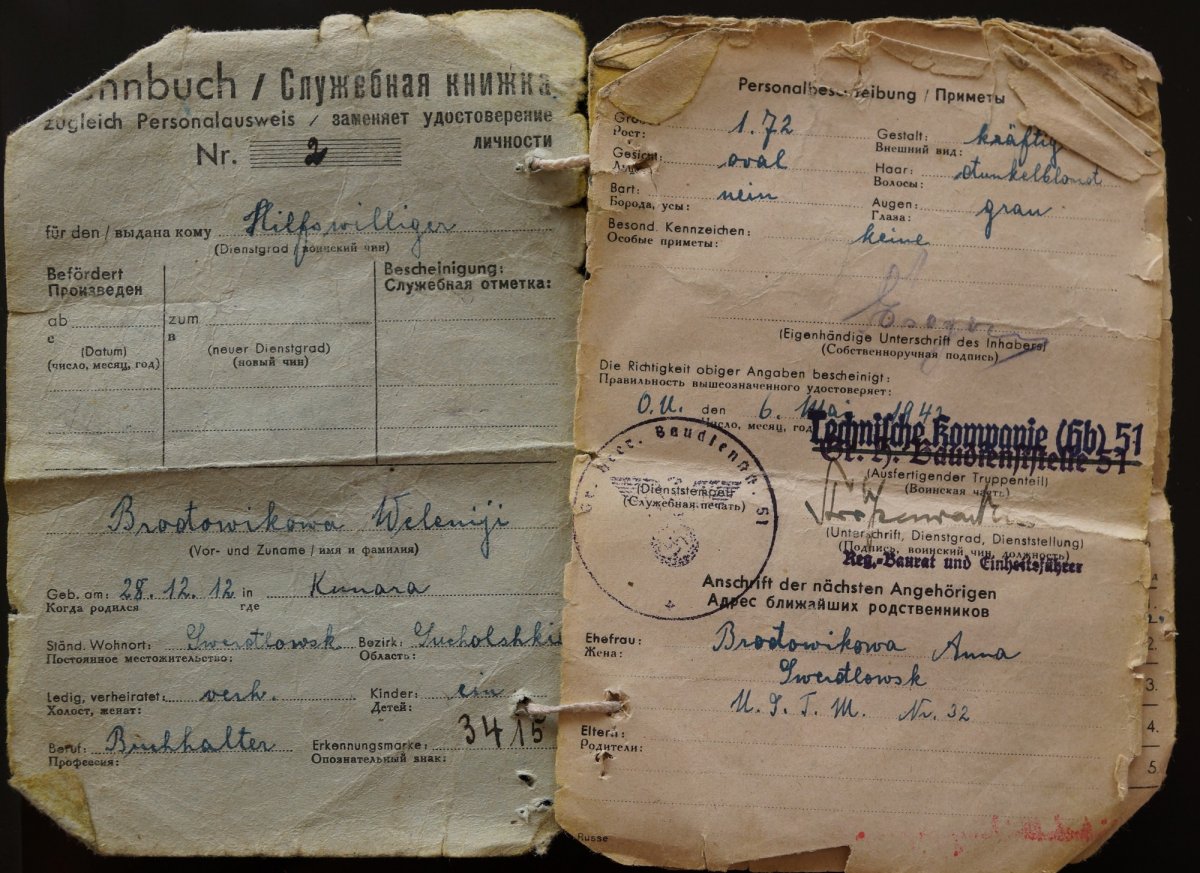 nnbuch / Служебная книжка
zugleich Personalausweis / заменяет удостоверение
личности
Nr. 2
für den / выдана кому Hilfswilliger
(Dienstgrad воинский чин)
Befördert
Произведен
Bescheinigung:
Служебная отметка:
ab
с
zum
в
(Datum)
(число, месяц, год)
(neuer Dienstgrad)
(новый чин)
Brodowikowa Weleniji
(Vor- und Zuname / имя и фамилия)
Geb. am: 28. 12. 12 in Kunara
Когда родился где
Ständ. Wohnort: Swerdlowsk Bezirk:
Постоянное местожительство: Область:
Ledig, verheiratet: verh. Kinder: ein
Холост, женат: Детей:
Beruf: Buchhalter Erkennungsmarke: 3415
Профессия: Опознательный знак:
Personalbeschreibung / Приметы
Рост: 1.72
Gestalt: kräftig
Внешний вид:
Gesicht oval
Haar: dunkelblond
Волосы:
Bart: nein
Борода, усы:
Augen: grau
Глаза:
Besond. Kennzeichen: keine
Особые приметы:
(Eigenhändige Unterschrift des Inhabers)
(Собственноручная подпись)
Die Richtigkeit obiger Angaben bescheinigt:
Правильность вышеозначенного удостоверяет:
O.U. den 6. Mai
Число, месяц, год
Technische Kompanie (Hb) 51
Gr. H. Baudienststelle 51
(Ausfertigender Truppenteil)
(Воинская часть)
Baudienstst. 51
(Dienststempel)
(Служебная печать)
(Unterschrift, Dienstgrad, Dienststellung)
(Подпись, воинский чин, должность)
Reg.-Baurat und Einheitsführer
Anschrift der nächsten Angehörigen
Адрес ближайших родственников
Ehefrau: Brodowikowa Anna
Жена:
Swerdlowsk
Nr. 32
Eltern:
Родители:
Russe
1.
2.
3.
4.
5.